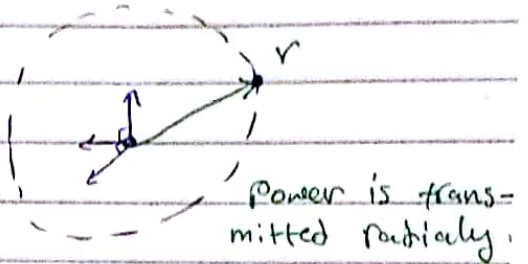 r
Power is trans-
mitted radialy.